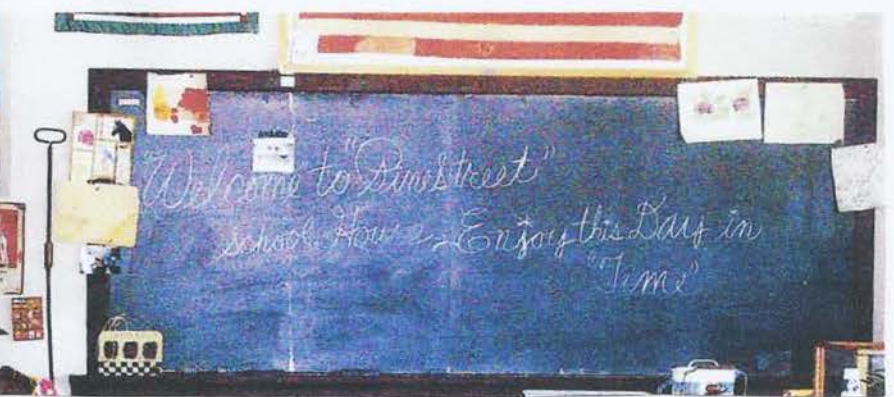 Welcome to "Pine Street"
school House Enjoy this Day in
"Time"